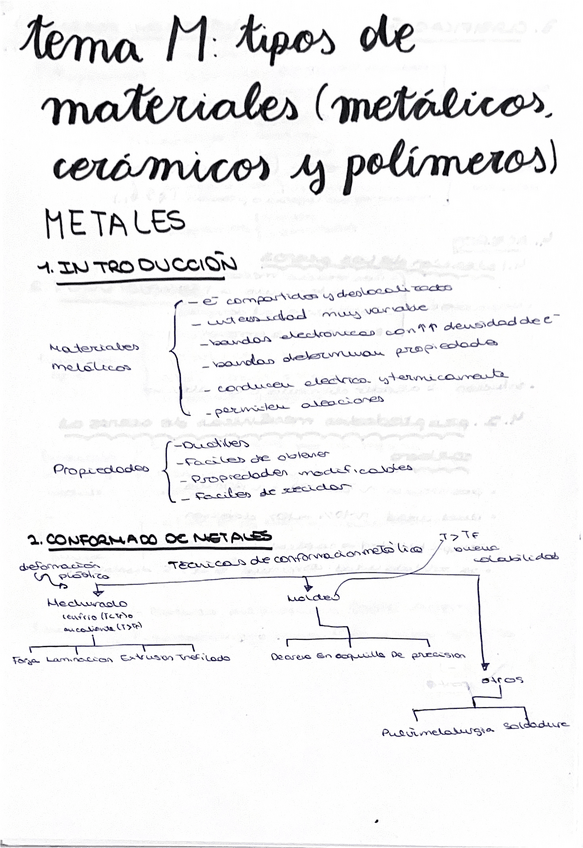 tema M: tipos de
materiales (metálicos,
cerámicos y polímeros)
METALES
1. INTRODUCCIÓN
Materiales metálicos
- e⁻ compartidos y deslocalizados
- intensidad muy variable
- bandas electrónicas con ↑↑ densidad de e⁻
- bandas determinan propiedades
- conducen eléctrica y térmicamente
- permiten aleaciones
Propiedades
- Ductibles
- Fáciles de obtener
- Propiedades modificables
- Fáciles de reciclar
2. CONFORMADO DE METALES
T > TF
buena colabilidad
deformación plástica
Técnicas de conformación metálica
Mechurado
en frío (T<Tr) o
en caliente (T>Tr)
Moldeo
Forja Laminación Extrusión Trefilado
De arena En coquilla De precisión
otros
Pulvimetalurgia Soldadura